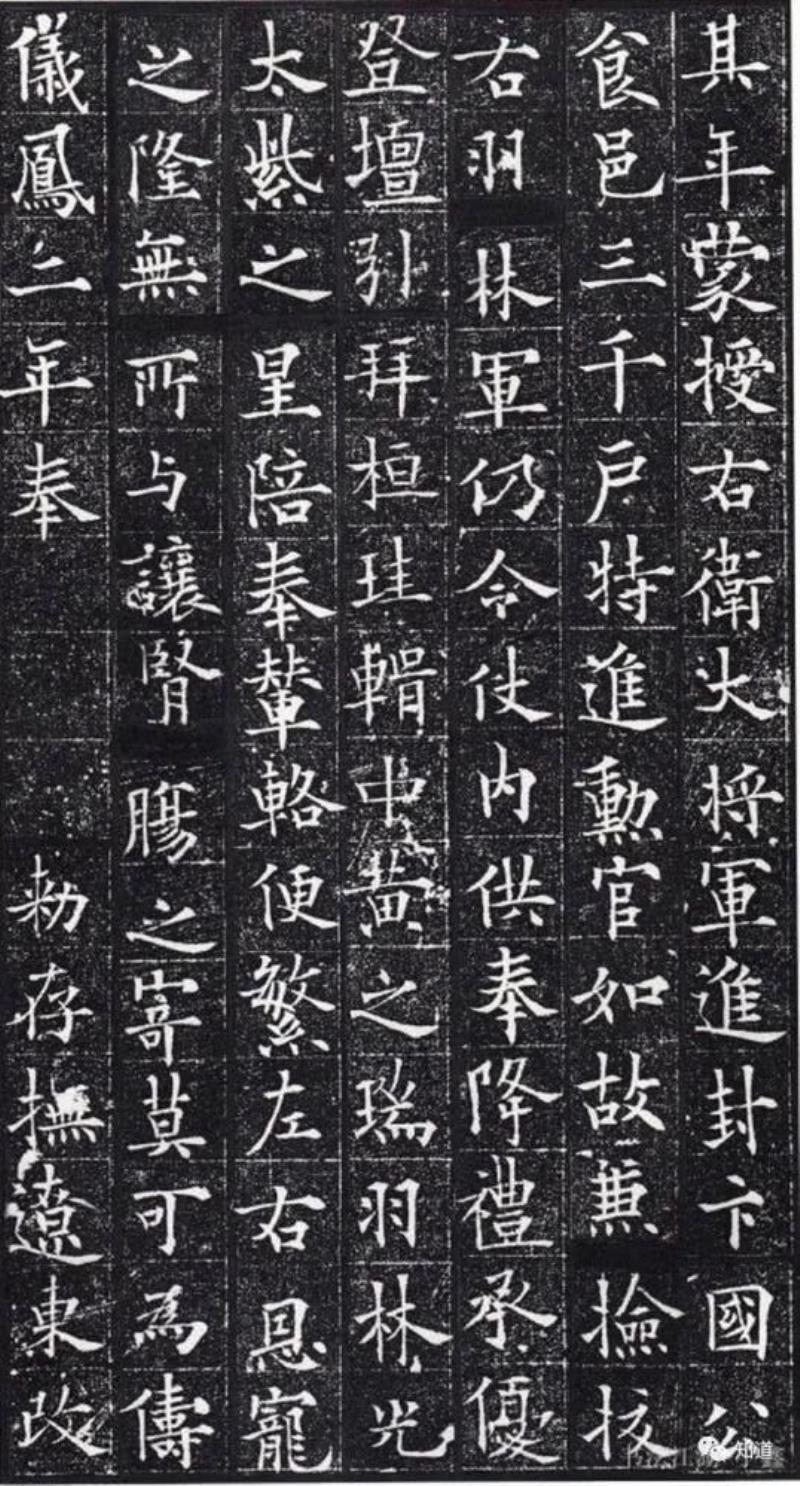 其年蒙授右衛大将軍進封卞國公
食邑三千戶特進勳官如故兼撿挍
右羽林軍仍令仗内供奉降禮承優
登壇引拜桓珪輯中黄之瑞羽林光
太紫之星陪奉輦輅便繁左右恩寵
之隆無所与讓腎腸之寄莫可為儔
儀鳳二年奉勑存撫遼東改
知道